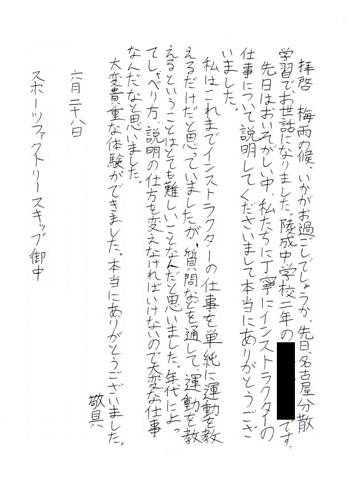 拝啓 梅雨の候、いかがお過ごしでしょうか。先日、名古屋分散
学習でお世話になりました。陵成中学校二年の です。
先日はおいそがしい中、私たちに丁寧にインストラクターの
仕事について説明してくださいまして本当にありがとうござ
いました。
私はこれまでインストラクターの仕事を単純に運動を教
えるだけだと思っていましたが、質問などを通して、運動を教
えるということはとても難しいことなんだと思いました。年代によっ
てしゃべり方、説明の仕方を変えなければいけないので大変な仕事
なんだなと思いました。
大変貴重な体験ができました。本当にありがとうございました。
敬具
六月二十八日
スポーツファクトリースキップ御中